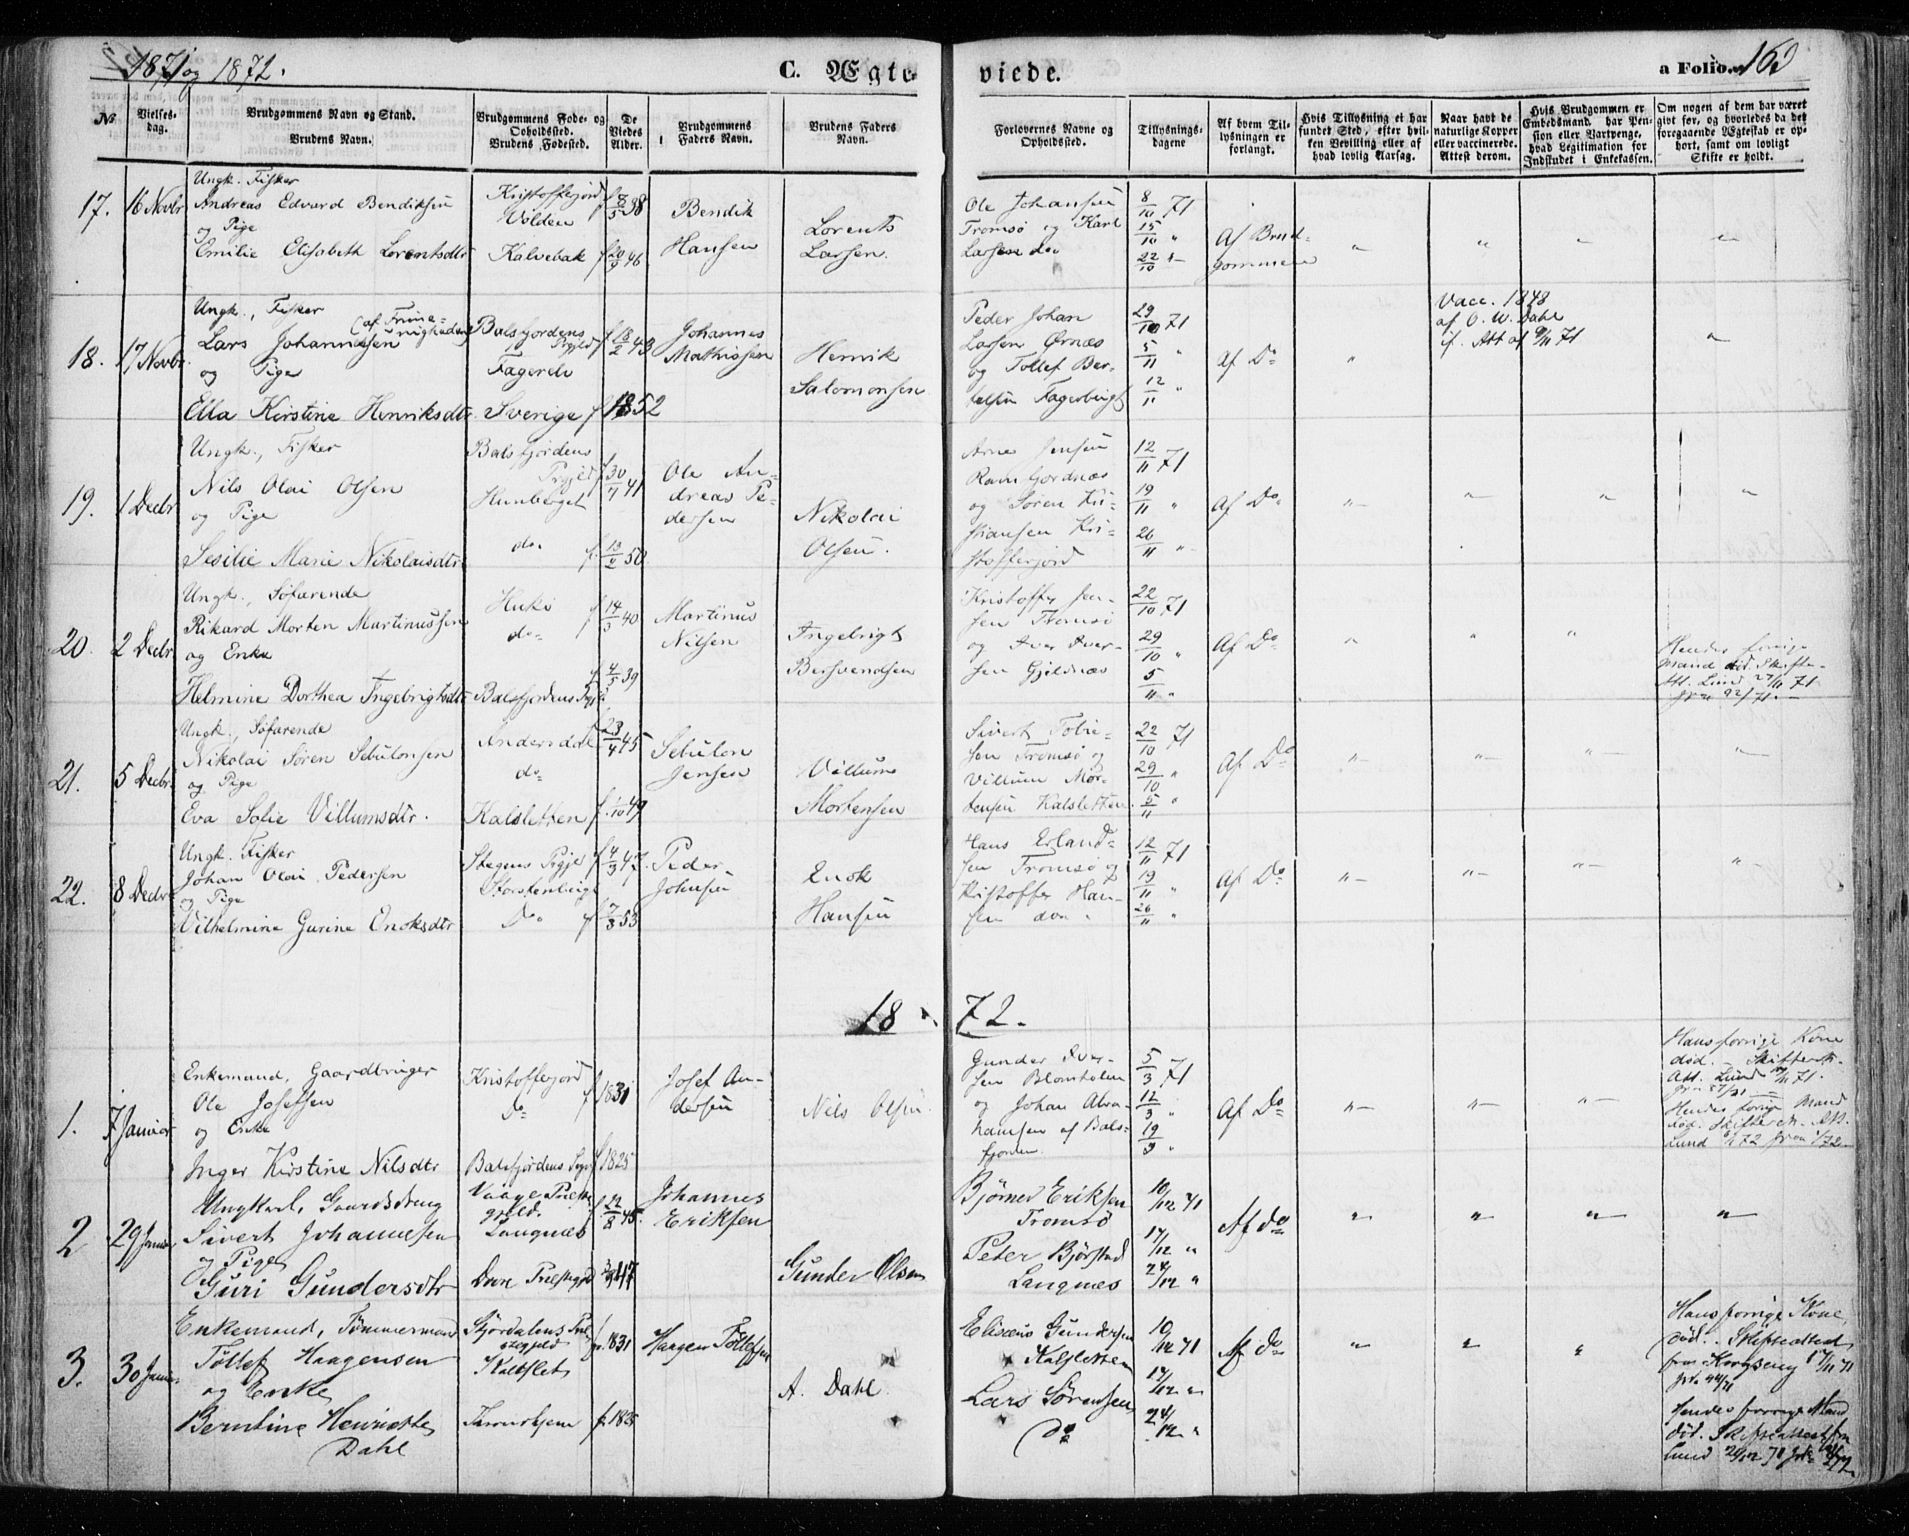 1871 og 1872.
C. Ægteviede.
a Folio. 160
No
Vielses-
dag.
Brudgommens Navn og Stand.
Brudens Navn.
Brudgommens Føde- og
Opholdssted.
Brudens Fødested.
De
Viedes
Alder.
Brudgommens
Faders Navn.
Brudens Faders
Navn.
Forlovernes Navne og
Opholdssted.
Tillysnings-
dagene
Af hvem Til-
lysningen er
forlangt.
Hvis Tillysning ei har
fundet Sted, efter hvil-
ken Bevilling eller af
hvad lovlig Aarsag.
Naar havt de
naturlige Kopper
eller vaccinerede.
Attest derom.
Hvis Brudgommen er
Embedsmand, har Pen-
sion eller Vartpenge,
hvad Legitimation for
Indskudet i Enkekassen.
Om nogen af dem har været
givt før, og hvorledes da det
foregaaende Ægteskab er op-
hørt, samt om lovligt
Skifte er holdt.
17. 16 Novbr
Ungk. Fisker
Andreas Edvard Bendiksen
og Pige
Emilie Elisabeth Lorentsdtr
Kristofferjord
Volden
Kalvebak
f 8/5 38
f 20/9 46
Bendik
Hansen
Lorents
Larsen.
Ole Johansen
Tromsø og Karl
Larsen do
8/10 71
15/10 "
22/10 "
Af Brud-
gommen
18. 17 Novbr.
Ungk., Fisker
(af Frime-
nigheden)
Lars Johannesen
og Pige
Ella Kirstine Henriksdtr.
Balsfjordens
Prgjeld
Fagereli
Sverige
f 18/2 43
f 1852
Johannes
Mathissen
Henrik
Salomonsen
Peder Johan
Larsen Ørnæs
og Tollef Ber-
telsen Fagerbergt
29/10 71
5/11 "
12/11 "
Af Do
Vacc. 1848
af O. W. Dahl
if. Att af 9/11 71
19. 1 Decbr
Ungk., Fisker
Nils Olai Olsen
og Pige
Sesilie Marie Nikolaisdtr
Balsfjordens
Prgjld
Hunberget
do.
f 30/7 41
Ole An-
dreas Pe-
dersen
Nikolai
Olsen.
Arne Jensen
Ramfjordnæs
og Søren Kri-
stiansen Kri-
stofferjord
12/11 71
19/11 "
26/11 "
Af Do
20. 2 Decbr
Ungk., Søfarende
Rikard Morten Martinussen
og Enke
Helmine Dorthea Ingebrigtsdtr
do
Balsfjordens Prgjld
f 14/3 40
f 4/5 39
Martinus
Nilsen
Ingebrigt
Bersvendsen
Kristoffer Jen-
sen Tromsø
og Iver Iver-
sen Gjeldnæs
22/10 71
29/10 "
5/11 "
Af Do
Hendes forrige
Mand død. Skifte-
Att. Lund 27/11 71.
21. 5 Decbr.
Ungk., Søfarende
Nikolai Søren Sebulonsen
og Pige
Eva Sofie Villumsdtr.
Andersdal
do
Kalsletten
f 23/4 45
Sebulon
Jensen
Villum
Mortensen
Sivert Tobie-
sen Tromsø og
Villum Mor-
tensen Kalsletten
22/10 71
29/10 "
5/11 "
Af Do
22. 8 Decbr
Ungk. Fisker
Johan Olai Pedersen
og Pige
Vilhelmine Gurine Enoksdtr
Stegens Prgje
Storstenberget
Do
f 4/3 47.
f 7/8 53
Peder
Johnsen
Enok
Hansen
Hans Erland-
sen Tromsø og
Kristoffer Han-
sen do
12/11 71
19/11 "
26/11 "
Af Do
1872.
1. 7 Januar
Enkemand, Gaardbruger
Ole Josefsen
og Enke
Inger Kirstine Nilsdtr
Kristofferjord
Do
Balsfjordens Prgj
f 1831
f 1825
Josef An-
dersen
Nils Olsen.
Gunder Iver-
sen Blomholm
og Johan Abra-
hamsen af Bals-
fjorden
5/3 71
12/3 "
19/3 "
Af Do
Hans forrige Kone
død. - Skifterets
Att. Lund
Hendes forrige Mand
død. Skifteretts Att.
Lund
2 29 Januar
Ungkarl, Gaardsdreng
Sivert Johannesen
og Pige
Guri Gundersdtr
Vaage Præste-
gjeld.
Langnæs
Dovre Præstegjeld
f 22/8 45.
Johannes
Eriksen
Gunder Olsen
Bjørner Eriksen
Tromsø
Peter Bjørstad
Langnæs
10/12 71
17/12 "
24/12 "
Af do
3. 30 Januar
Enkemand, Tømmermand
Tollef Haagensen
og Enke
Berntine Henriette
Dahl
Stjørdalens Præ-
stegjeld
Kalslet
Throndhjem
f. 1831
f. 1825
Haagen Tollefsen
A. Dahl.
Eliseus Gundersen
Kalsletten
Lars Sørensen
Do
10/12 71
17/12 "
24/12 "
Af Do
Hans forrige Kone
død. Skifteattest
fra
Hendes forrige Mand
død. Skifteattest fra
Lund